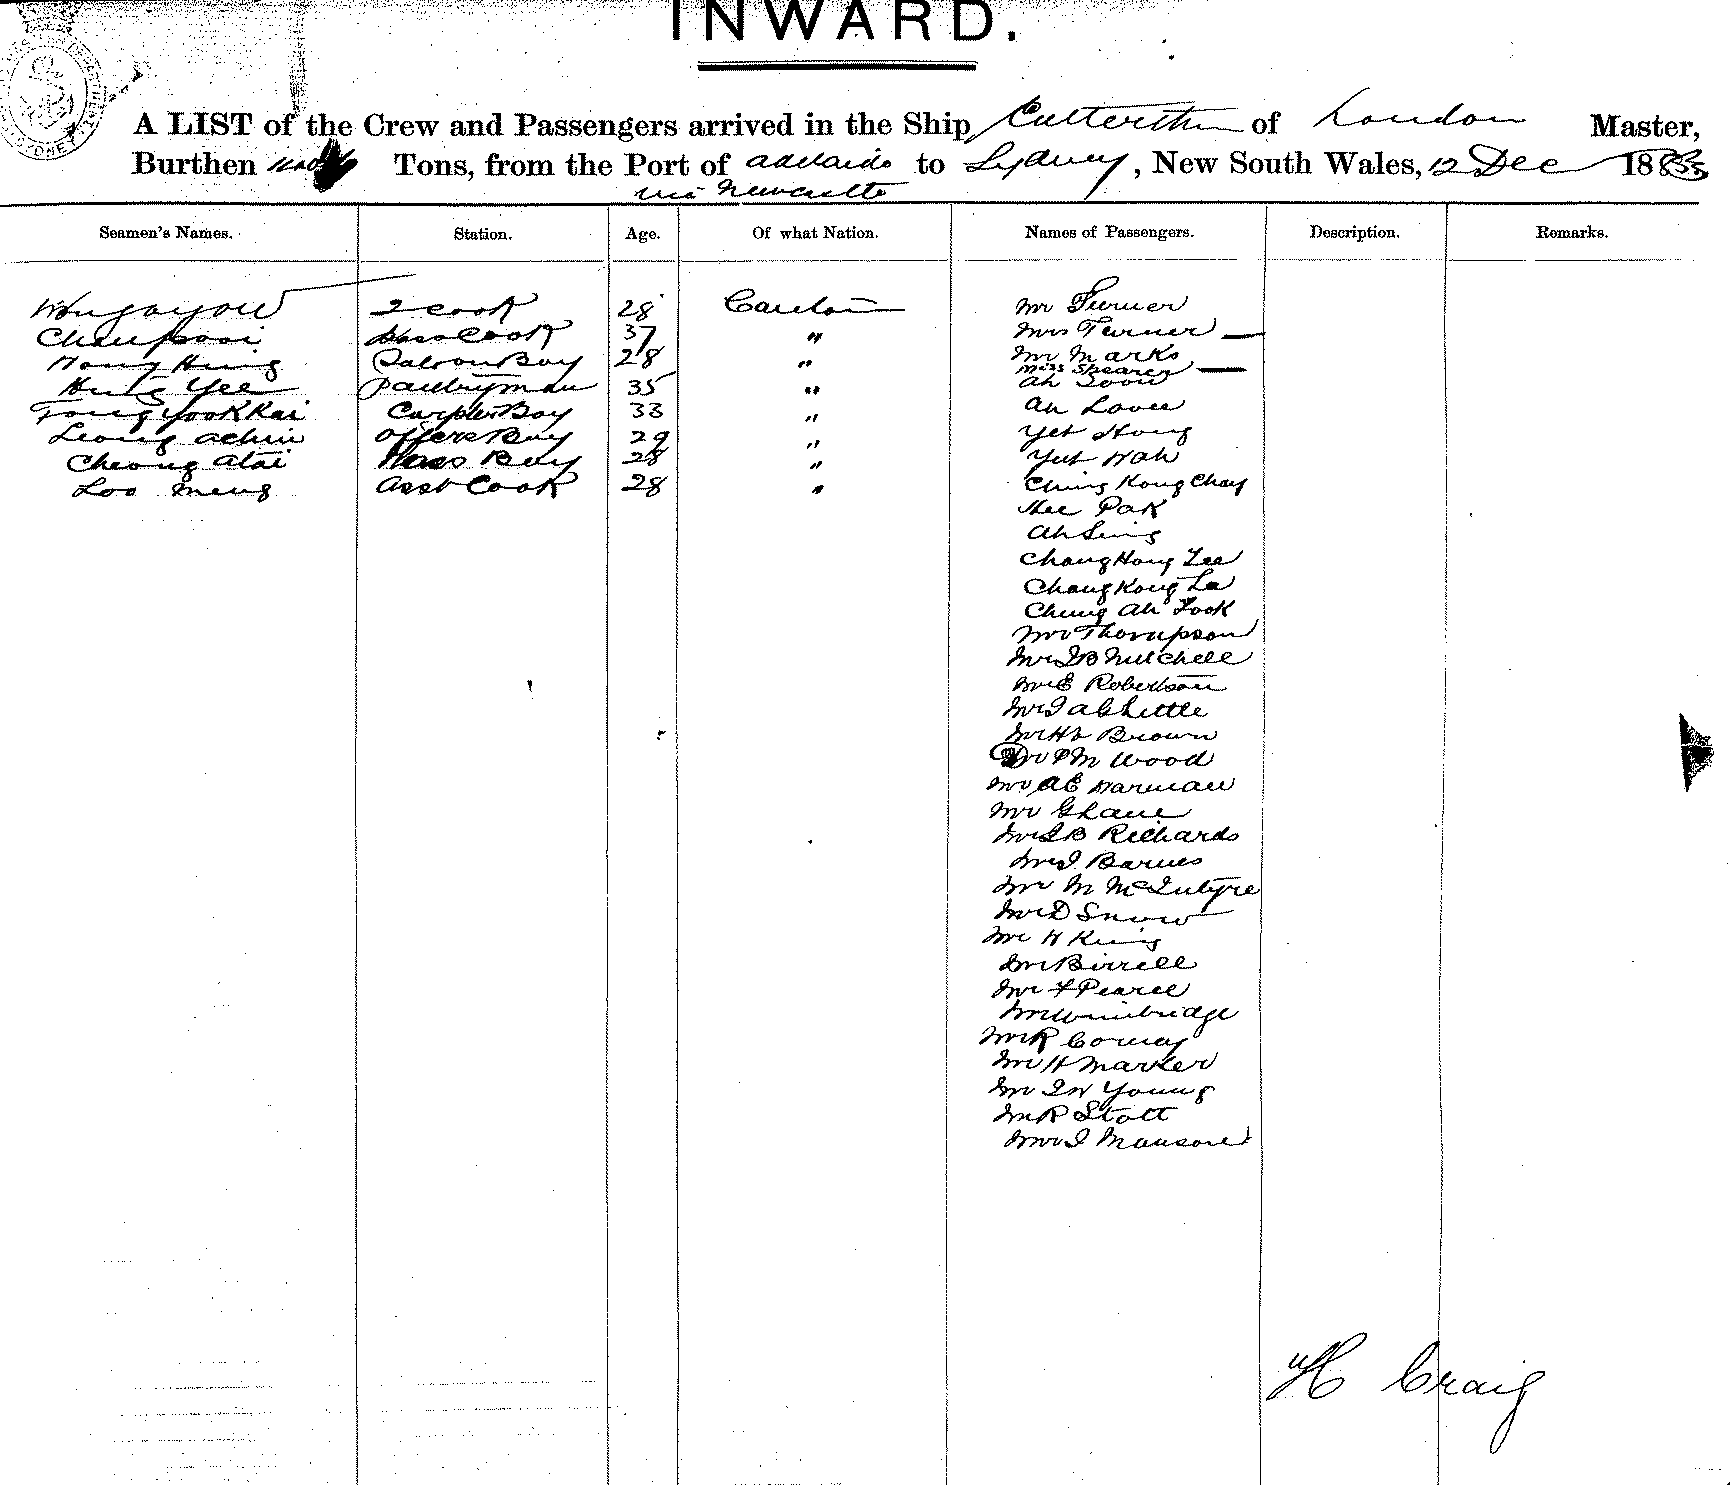 INWARD.
A LIST of the Crew and Passengers arrived in the Ship Catterthun of London Master,
Burthen Tons, from the Port of Adelaide to Sydney, New South Wales, 12 Dec 188
via Newcastle
Seamen's Names. Station. Age. Of what Nation. Names of Passengers. Description. Remarks.
2 Cook 28 Canton Mr Turner
Cook 37 " Mrs Turner —
Wong Hing Saloon Boy 28 " Mr Marks
Miss Shearer —
Hung Yee Pantryman 35 " Ah Soon
Tong Yook Kai Carpter Boy 33 " Ah Lovee
Leong Achin Officers Boy 29 " Yet Hong
Cheong Atai Mess Boy 28 " Yut Wah
Loo Meng Asst Cook 28 " Ching Kong Chay
Hee Pak
Ah Sing
Chang Hong Lee
Chang Kong La
Chung Ah Fook
Mr Thompson
Mr J B Mitchell
Mr E Robertson
Mr J A G Little
Mr H L Brown
Mr P M Wood
Mr A E Harman
Mr G Lane
Mr J B Richards
Mr J Barnes
Mr M McIntyre
Mr D Snow
Mr H King
Mr Birrell
Mr F Pearce
Mr Winbridge
Mr R Conway
Mr H Marker
Mr J W Young
Mr R Stott
Mr J Manson
H Craig